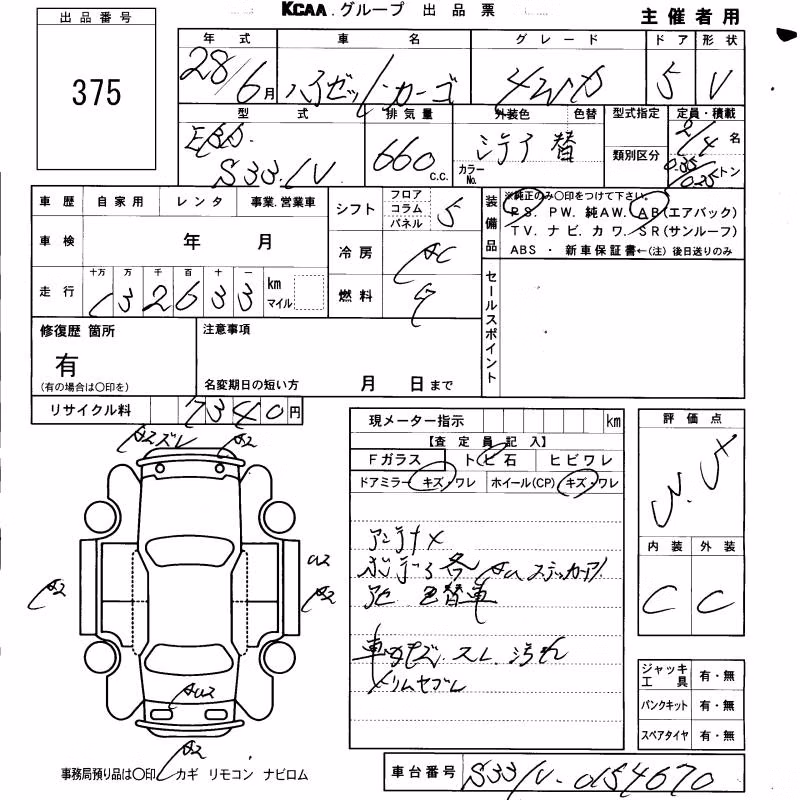 出品番号
375
KCAA.グループ 出品票
主催者用
年式 車名 グレード ドア 形状
28/6月 ハイゼットカーゴ 4WD 5 V
型式 排気量 外装色 色替 型式指定 定員・積載
EBD- S331V 660 C.C. シロ 替 カラーNo. 類別区分 2/4名 0.35/0.25トン
車歴 自家用 レンタ 事業.営業車
シフト フロア コラム パネル 5
装備品 ※純正のみ○印をつけて下さい。
P S. P W. 純A W. A B(エアバック)
T V. ナ ビ. カ ワ. S R(サンルーフ)
A B S ・ 新車保証書←(注) 後日送りのみ
車検 年 月
冷房 AC
走行 十万 万 千 百 十 一
132633 km マイル
燃料
セールスポイント
修復歴 箇所
有
(有の場合は○印を)
注意事項
名変期日の短い方 月 日まで
リサイクル料 7340円
現メーター指示 km
【査定員記入】
Fガラス トビ石 ヒビワレ
ドアミラー キズ・ワレ ホイール(CP) キズ・ワレ
アンテナ×
ボデー各 AU ステッカーアト
色替車
スレ 汚れ
評価点
内装 外装
C C
A2 ズレ
A2
A2
A2
A2
AU2
A2
ジャッキ工具 有・無
パンクキット 有・無
スペアタイヤ 有・無
事務局預り品は○印 カギ リモコン ナビロム
車台番号 S331V-0154670